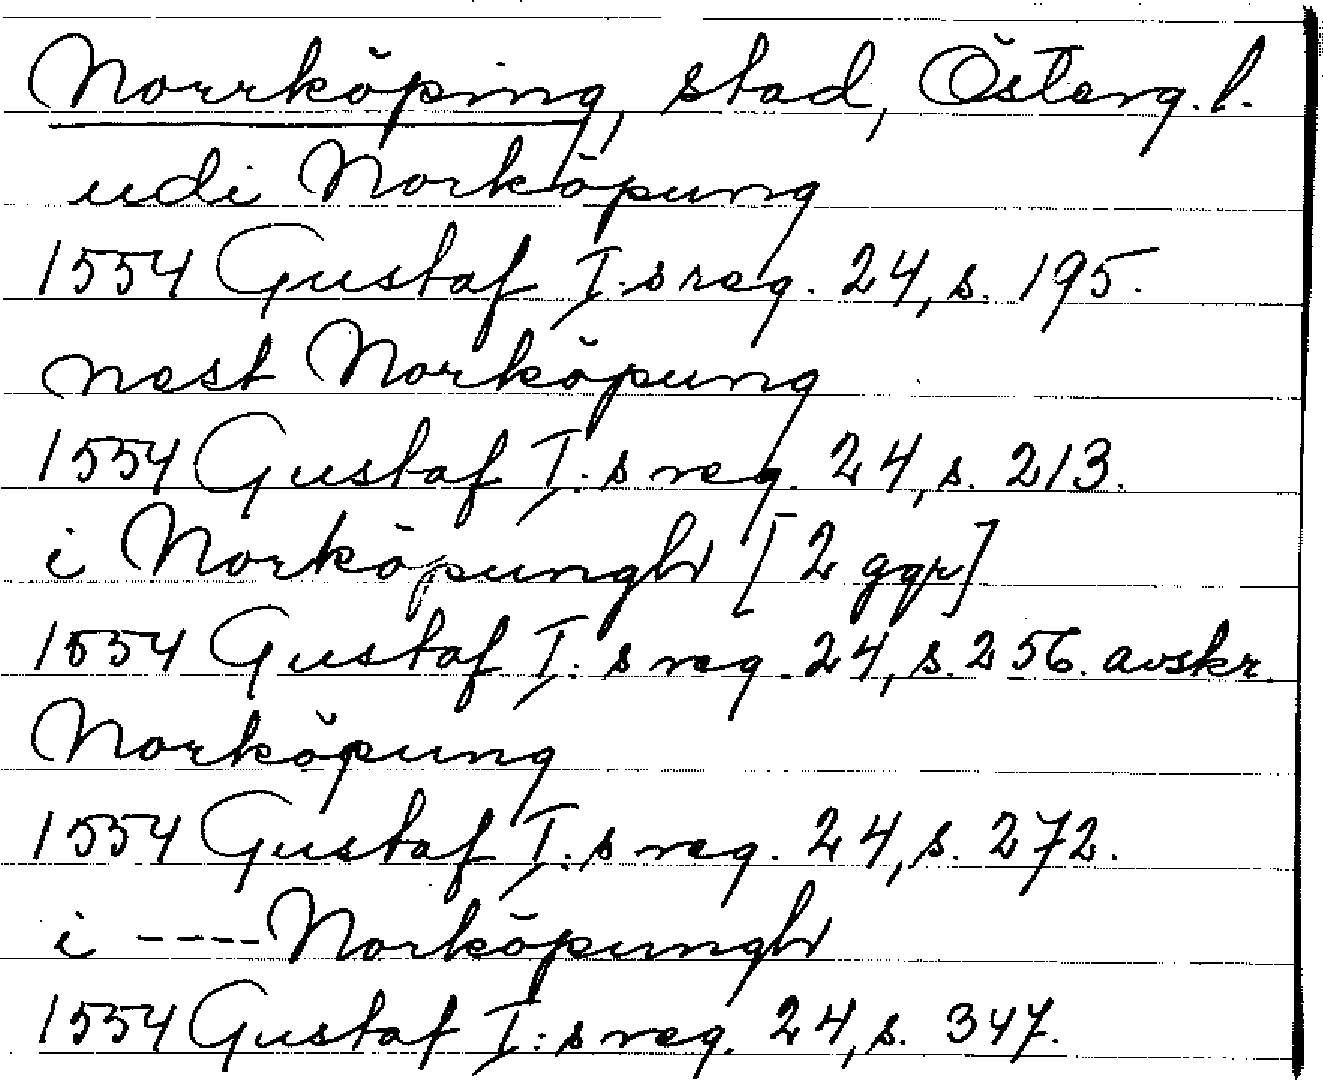 Norrköping, stad, Österg. l.
udi Norköpung
1554 Gustaf I:s reg. 24, s. 195.
nest Norköpung
1554 Gustaf I:s reg. 24, s. 213.
i Norköpungh [2 ggr]
1554 Gustaf I:s reg. 24, s. 256. avskr.
Norköpung
1554 Gustaf I:s reg. 24, s. 272.
i ---- Norköpungh
1554 Gustaf I:s reg. 24, s. 347.